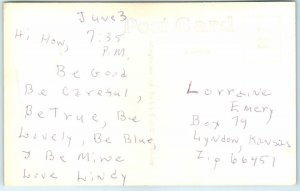 June 3
Post Card
Hi How, 7:35
P.M.
Be Good
Be Careful,
Be True, Be
Lovely, Be Blue
& Be Mine
Love Lindy
Lorraine
Emery
Box 79
Lyndon, Kansas
Zip 66451